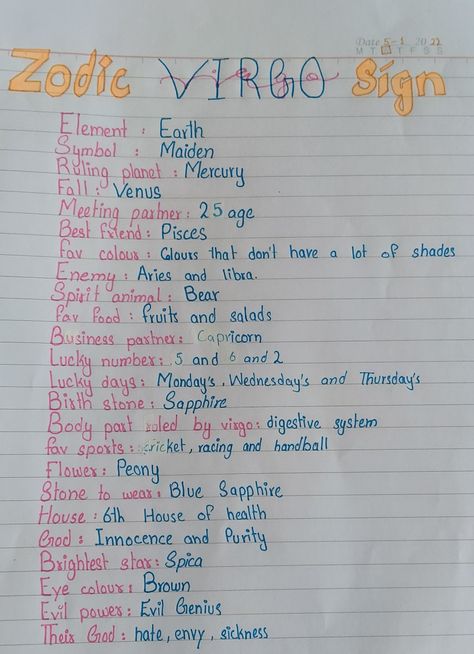 Date 5-1 2022
M T W T F S S
Zodic VIRGO Sign
Element : Earth
Symbol : Maiden
Ruling planet : Mercury
Fall : Venus
Meeting partner : 25 age
Best friend : Pisces
fav colour : Colours that don't have a lot of shades
Enemy : Aries and libra.
Spirit animal : Bear
fav food : fruits and salads
Business partner : Capricorn
Lucky number : 5 and 6 and 2
Lucky days : Monday's, Wednesday's and Thursday's
Birth stone : Sapphire
Body part ruled by virgo : digestive system
fav sports : cricket, racing and handball
Flower : Peony
Stone to wear : Blue Sapphire
House : 6th House of health
God : Innocence and Purity
Brightest star : Spica
Eye colour : Brown
Evil power : Evil Genius
Their God : hate, envy, sickness